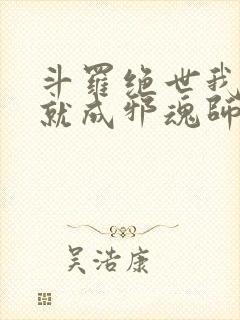 斗羅绝世我
就成邪魂師
吴浩康